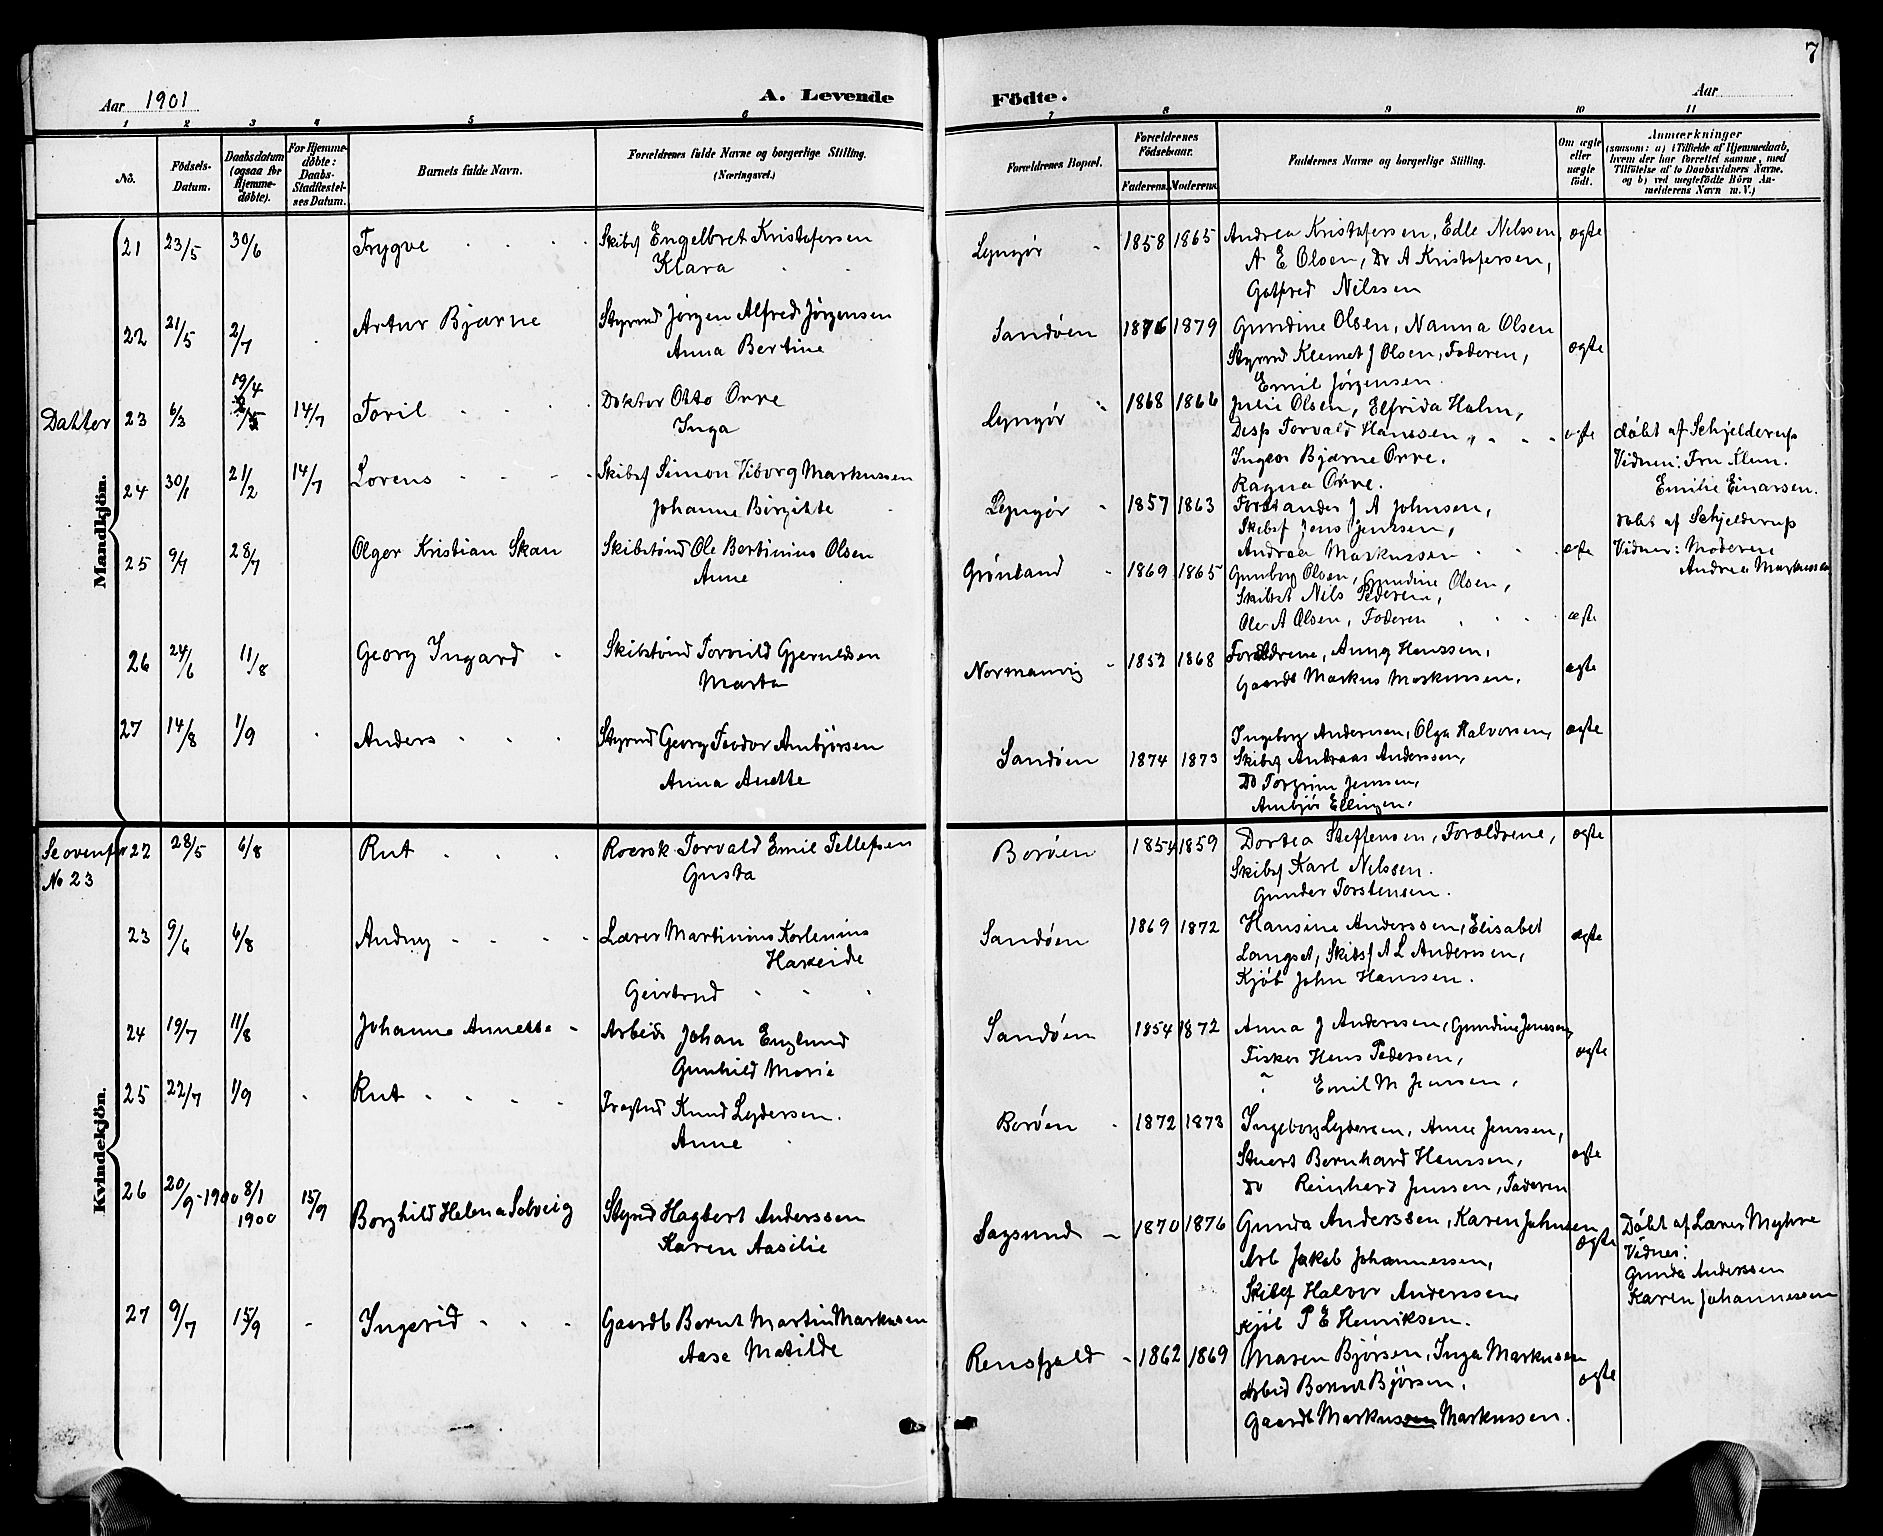 7
Aar 1901
A. Levende Födte.
Aar
1 2 3 4 5 6 7 8 9 10 11
No.
Födsels-Datum.
Daabsdatum (ogsaa for Hjemme-döbte).
For Hjemme-döbte: Daabs-Stadfæstel-ses Datum.
Barnets fulde Navn.
Forældrenes fulde Navne og borgerlige Stilling. (Næringsvei.)
Forældrenes Bopæl.
Forældrenes Födselsaar.
Faderens. Moderens.
Faddernes Navne og borgerlige Stilling.
Om ægte eller uægte födt.
Anmærkninger (saasom: a) i Tilfælde af Hjemmedaab, hvem der har forrettet samme, med Tilföielse af to Daabsvidners Navne, og b) ved uægtefödte Börn An-melderens Navn m. V.)
Mandkjön.
21 23/5 30/6 Trygve Skibsf Engelbret Kristofersen Lyngør 1858 1865 Andrea Kristofersen, Edle Nilssen, ægte
Klara A E Olsen, Dr A Kristofersen,
Gotfred Nilssen
22 21/5 2/7 Artur Bjarne Styrmd Jørgen Alfred Jørgensen Sandøen 1876 1879 Gundine Olsen, Nanna Olsen
Anna Bertine Styrmd Klemet J Olsen, Faderen, ægte
Emil Jørgensen.
Datter 23 6/3 19/4 14/7 Toril Doktor Otto Orre Lyngør 1868 1866 Julie Olsen, Elfrida Holm,
Inga Disp Torvald Hanssen, ægte døbt af Schjelderup
Ingeør Bjarne Orre. Vidner: Fru Klem.
Ragna Orre. Emilie Einarsen.
24 30/1 21/2 14/7 Lorens Skibsf Simon Viborg Markussen Lyngør 1857 1863 Forstander J A Johnsen,
Johanne Birgitte Skibsf Jens Jenssen, døbt af Schjelderup
Andrea Markussen ægte Vidner: Moderen
Andrea Markussen
25 9/7 28/7 Olger Kristian Skau Skibstømd Ole Bertinius Olsen Grønland 1869 1865 Gunborg Olsen, Gundine Olsen,
Anne Skibst Nils Pedersen,
Ole A Olsen, Faderen ægte
26 24/6 11/8 Georg Ingard Skibstømd Torvild Gjeruldsen Normannvig 1852 1868 Forældrene, Anna Hanssen,
Marta Gaardb Markus Markussen, ægte
27 14/8 1/9 Anders Styrmd Georg Teodor Ambjørsen Sandøen 1874 1873 Ingeborg Anderssen, Olga Halvorsen, ægte
Anna Anette Skibsf Andraas Anderssen,
Do Torgrim Jenssen,
Ambjør Ellingsen.
Kvindekjön.
Se ovenfor No 23
22 28/5 6/8 Rut Roersk Torvald Emil Tellefsen Borøen 1854 1859 Dortea Steffensen, Forældrene, ægte
Gusta Skibsf Karl Nilssen.
Gunder Torstensen.
23 9/6 6/8 Andny Lærer Martinius Korlenius Sandøen 1869 1872 Hansine Anderssen, Elisabet
Hakeide Langset, Skibsf A L Anderssen, ægte
Geirtrud Kjøb John Hanssen.
24 19/7 11/8 Johanna Annette Arbeids Johan Englund Sandøen 1854 1872 Anna J Anderssen, Gundine Jenssen,
Gunhild Marie Fisker Hans Pedersen, ægte
" Emil M Jenssen,
25 22/7 1/9 Rut Fragtmd Knud Lydersen. Borøen 1872 1873 Ingeborg Lydersen, Anne Jenssen,
Anne Stuert Bernhard Hanssen, ægte
Do Reinhard Jenssen, Faderen
26 20/9-1900 8/1 1900 15/9 Borghild Helena Solveig Styrmd Hagbart Anderssen Sagsund 1870 1876 Gunda Anderssen, Karen Johnsen ægte Døbt af Lærer Myhre
Karen Aasilie Arb Jakob Johannessen, Vidner:
Skibsf Halvor Anderssen Gunda Anderssen
Kjøb P E Henriksen. Karen Johannessen
27 9/7 15/9 Ingerid Gaardb Bernt Martin Markussen Rensfjeld 1862 1869 Maren Bjørsen, Inga Markussen
Aase Matilde Arbeid Bernt Bjørsen, ægte
Gaardb Markussen Markussen.